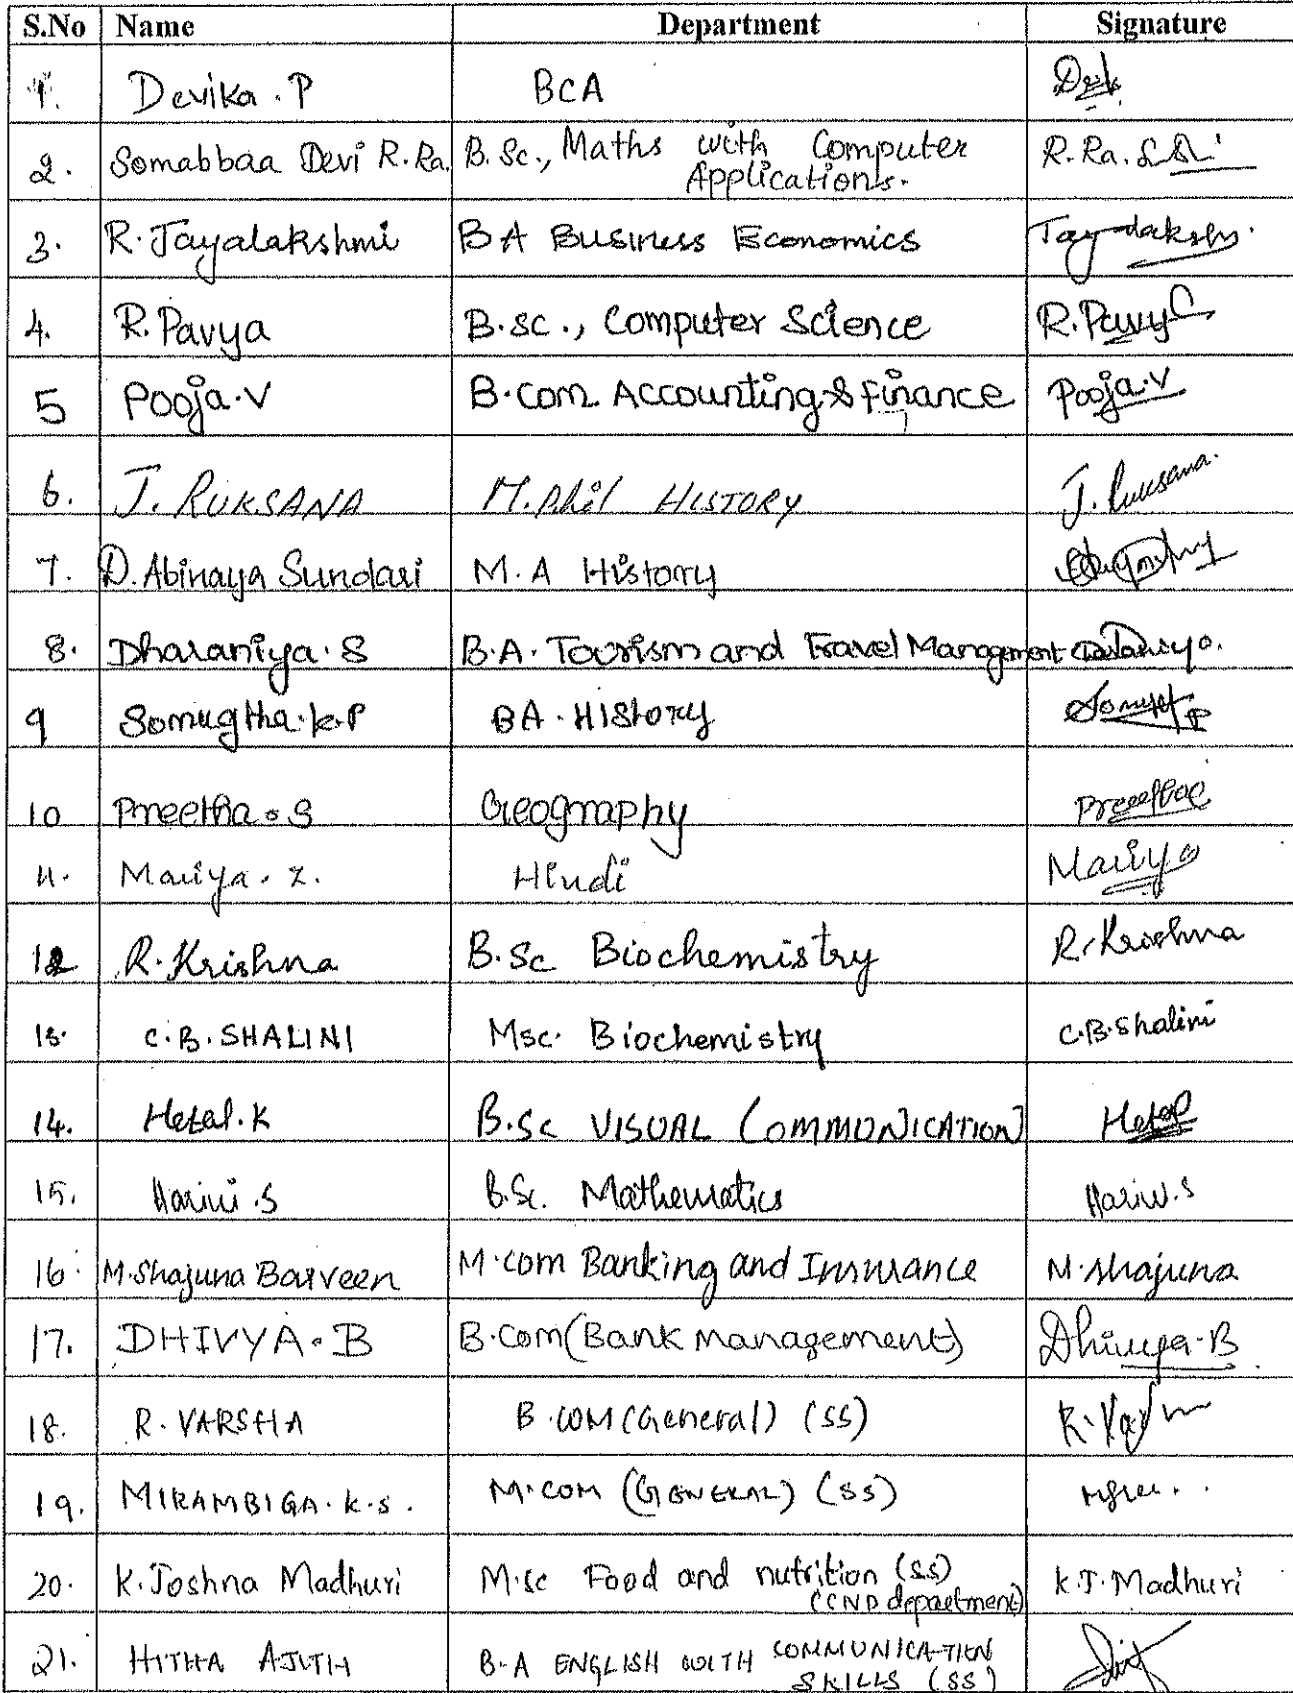 S.No Name Department Signature
1. Devika . P BCA
2. Somabbaa Devi R.Ra. B.Sc., Maths with Computer R.Ra.
Applications.
3. R. Jayalakshmi BA Business Economics
4. R. Pavya B.sc., Computer Science R. Pavy
5 Pooja.V B.com Accounting & finance Pooja.V
6. J. RUKSANA M.phil HISTORY J. Ruksana.
7. D. Abinaya Sundari M.A History
8. Dharaniya. S B.A. Tourism and Travel Management
9 Somugtha.k.P BA. History
10 Preetha. S Geography
11. Mariya. Z. Hindi Mariya
12 R. Krishna B.Sc Biochemistry R. Krishna
13. C.B. SHALINI Msc. Biochemistry C.B. Shalini
14. Hetal. K B.Sc VISUAL COMMUNICATION Hetal
15. Harini .S B.Sc. Mathematics Harini.S
16. M. Shajuna Barveen M.com Banking and Insurance M. Shajuna
17. DHIVYA. B B.Com (Bank Management) Dhivya-B
18. R. VARSHA B.COM (General) (SS)
19. MIRAMBIGA. K.S. M.COM (GENERAL) (SS)
20. K. Joshna Madhuri M.sc Food and nutrition (SS) K.J. Madhuri
(CND department)
21. HITHA AJITH B.A ENGLISH WITH COMMUNICATION
SKILLS (SS)